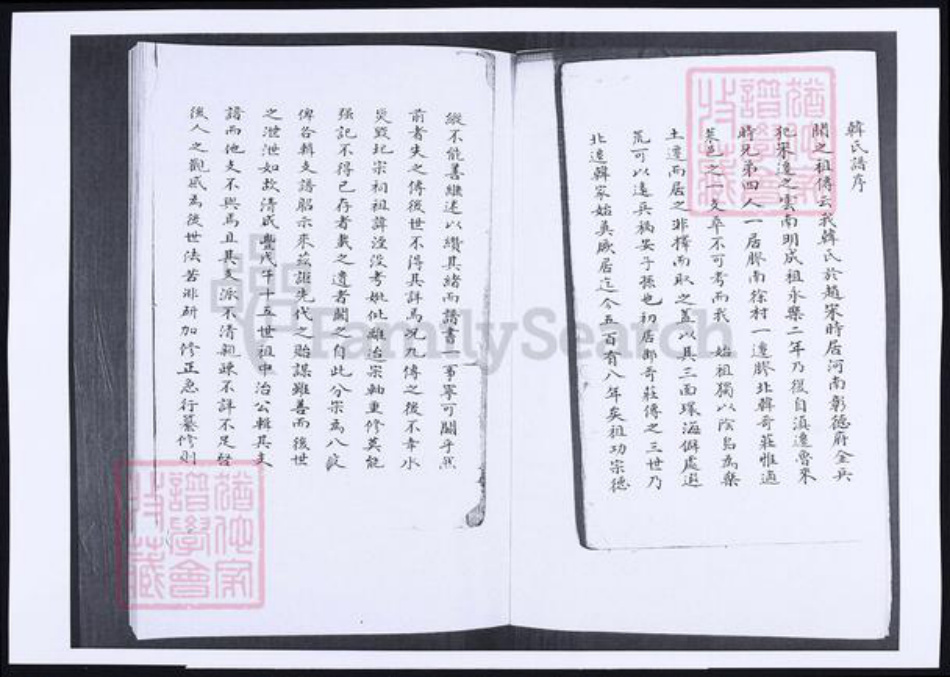 韓氏譜序
聞之祖傳云我韓氏於趙宋時居河南彰德府金兵
犯宋遷之雲南明成祖永樂二年乃復自滇遷魯來
時兄弟四人一居膠南徐村一遷膠北韓哥莊惟適
萊邑之一支卒不可考而我 始祖獨以陰島為樂
土遷而居之非擇而取之蓋以其三面環海僻處遐
荒可以遠兵禍安子孫也初居邵哥莊傳之三世乃
北遷韓家始奠厥居迄今五百有八年矣祖功宗德
縱不能善繼述以纘其緒而譜書一事寧可闕乎然
前者失之傳後世不得其詳焉況九傳之後不幸水
災毀圮宗祠祖諱湮没考妣仳離迨宗軸重修英能
强記不得已存者載之遺者闕之自此分宗為八支
俾各輯支譜昭示來茲詎先代之貽謀雖善而後世
之泄泄如故清咸豐戊午十五世祖中治公輯其支
譜而他支不與焉且其支派不清親疎不詳不足啓
後人之觀感為後世法若非研加修正急行纂修則
猶他家
譜學會
收藏
猶他家
譜學會
收藏
FamilySearch